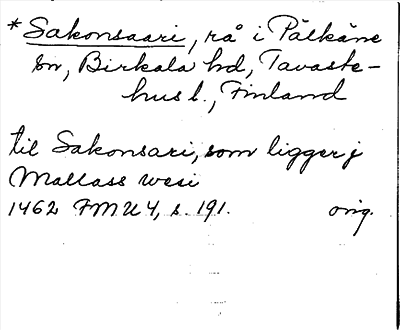 *Sakonsaari, rå i Pälkäne
sn, Birkala hd, Tavaste-
hus l., Finland
til Sakonsari, som ligger j
Mallass wesi
1462 FMU 4, s. 191. orig.